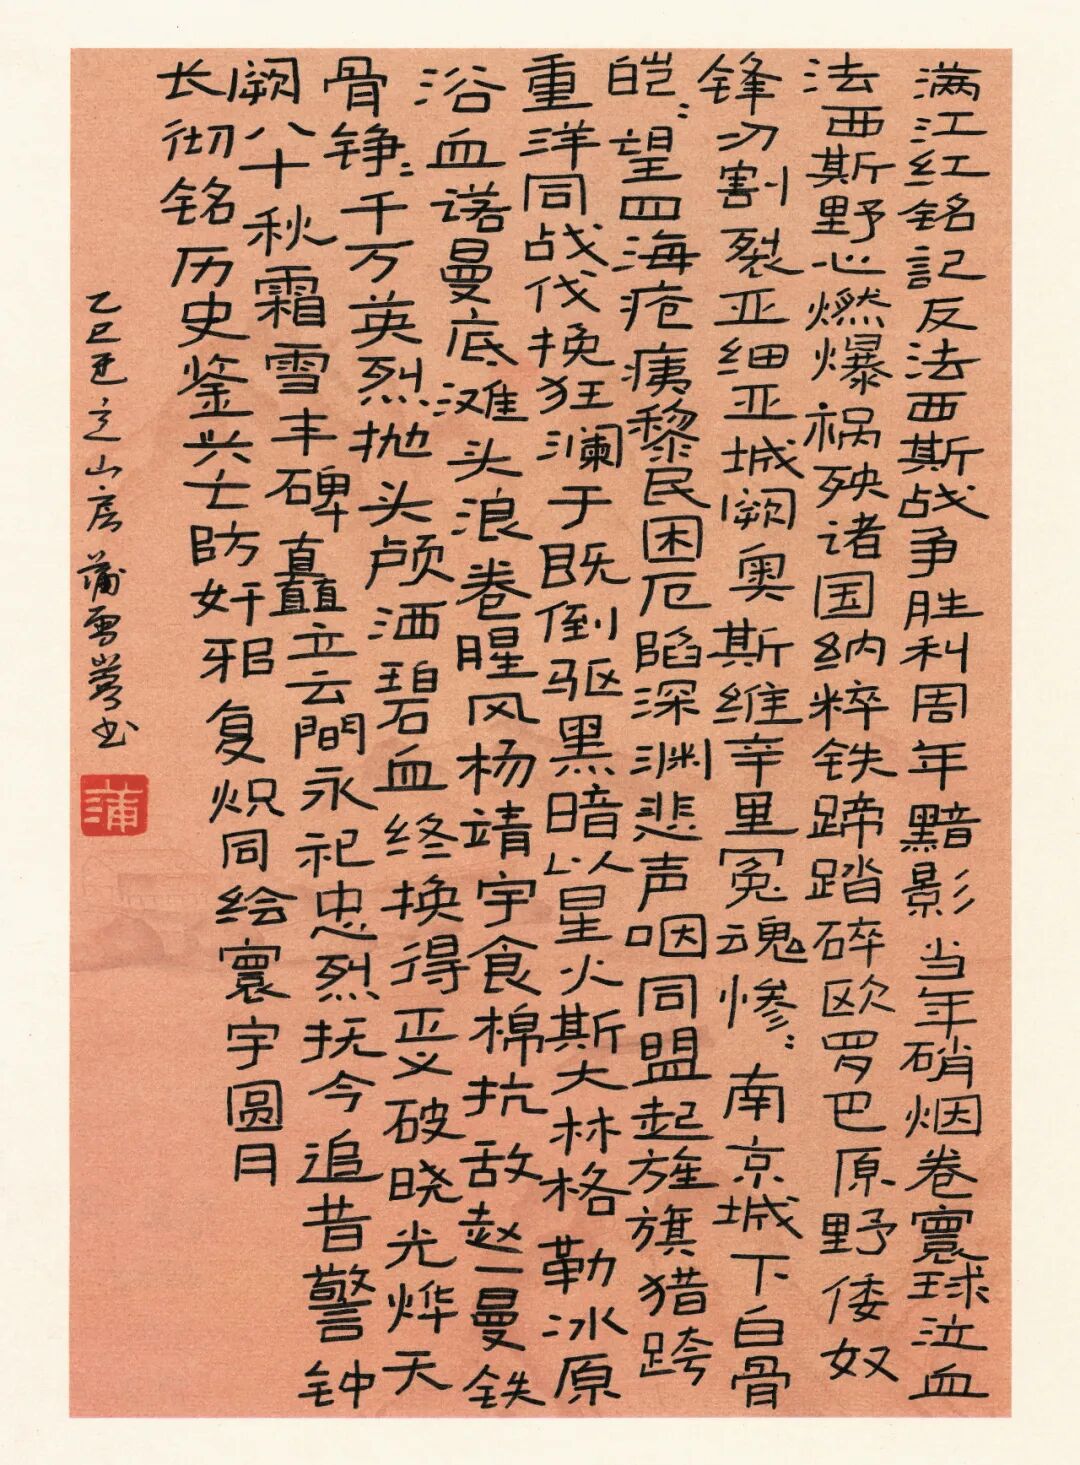 满江红铭記反法西斯战争胜利周年黯影当年硝烟卷寰球泣血
法西斯野心燃爆祸殃诸国纳粹铁蹄踏碎欧罗巴原野倭奴
锋刃割裂亚细亚城阙奥斯维辛里冤魂惨：南京城下白骨
皑：望四海疮痍黎民困厄陷深渊悲声咽同盟起旌旗猎跨
重洋同战伐挽狂澜于既倒驱黑暗以星火斯大林格勒冰原
浴血诺曼底滩头浪卷腥风杨靖宇食棉抗敌赵一曼铁
骨铮：千万英烈抛头颅洒碧血终换得正义破晓光烨天
阙八十秋霜雪丰碑矗立云間永祀忠烈抚今追昔警钟
长彻铭历史鉴兴亡防奸邪复炽同绘寰宇圆月
乙巳山房蒲雪书
蒲